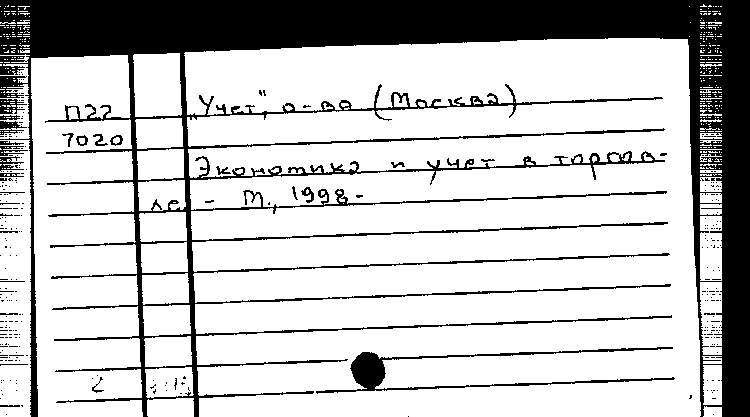 П22 „Учет", о-во (Москва)
7020
Экономика и учет в торгов-
ле. - М., 1998. -
2